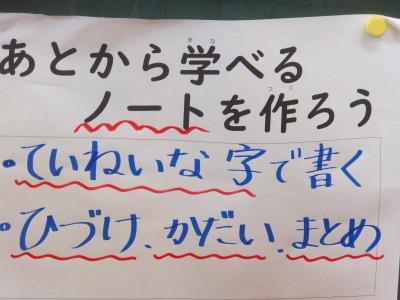 あとから学べる
ノートを作ろう
・ていねいな字で書く
・ひづけ、かだい、まとめ